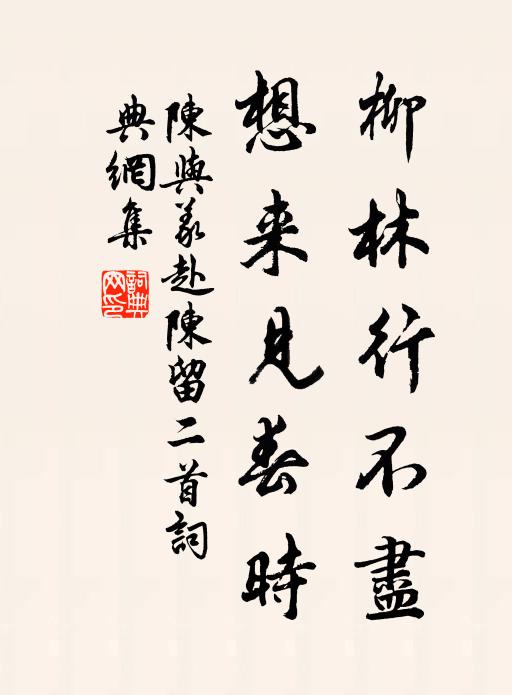 柳林行不盡
想来見春時
陳與義赴陳留二首詞
典網集
詞典
网印